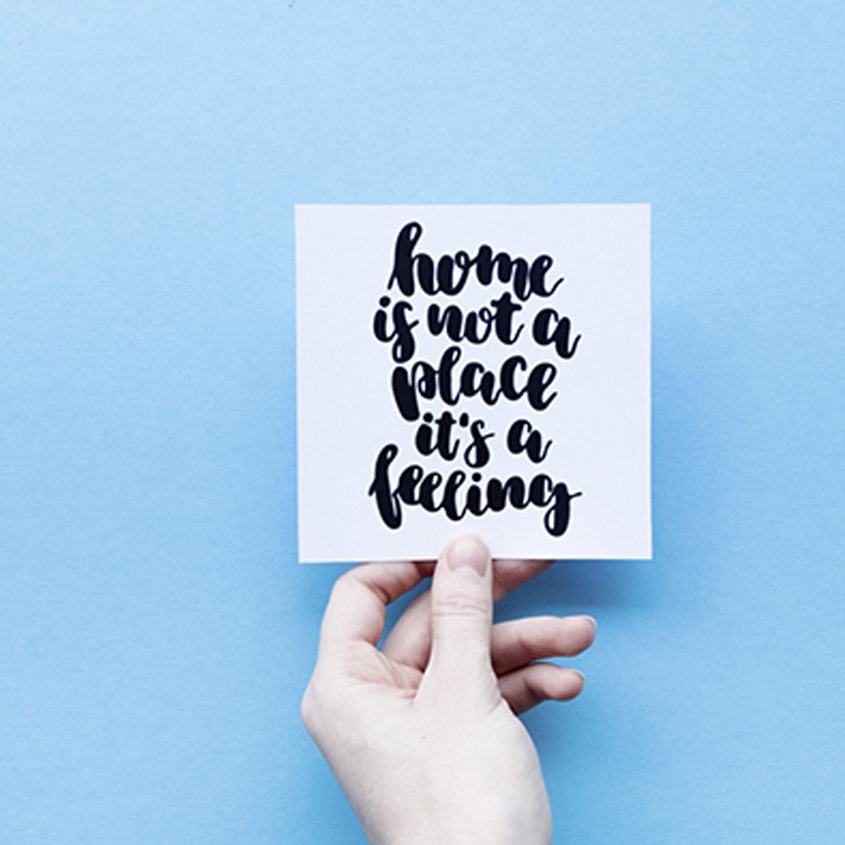 home
is not a
place
it's a
feeling